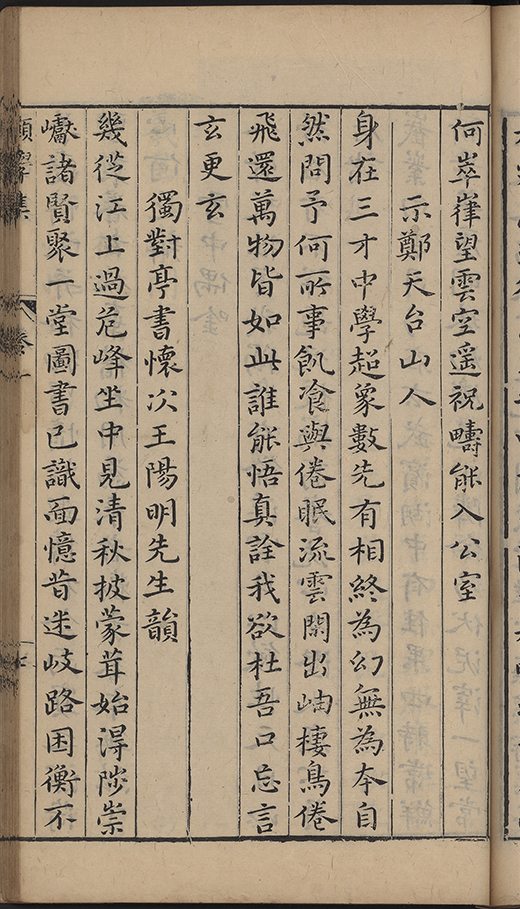 何崒嵂望雲空遥祝疇能入公室
示鄭天台山人
身在三才中學超象數先有相終為幻無為本自
然問予何所事飢飡與倦眠流雲閒出岫棲鳥倦
飛還萬物皆如此誰能悟真詮我欲杜吾口忘言
玄更玄
獨對亭書懷次王陽明先生韻
幾從江上過危峰坐中見清秋披蒙茸始得陟崇
巘諸賢聚一堂圖書已識面憶昔迷岐路困衡不
集
卷一
七